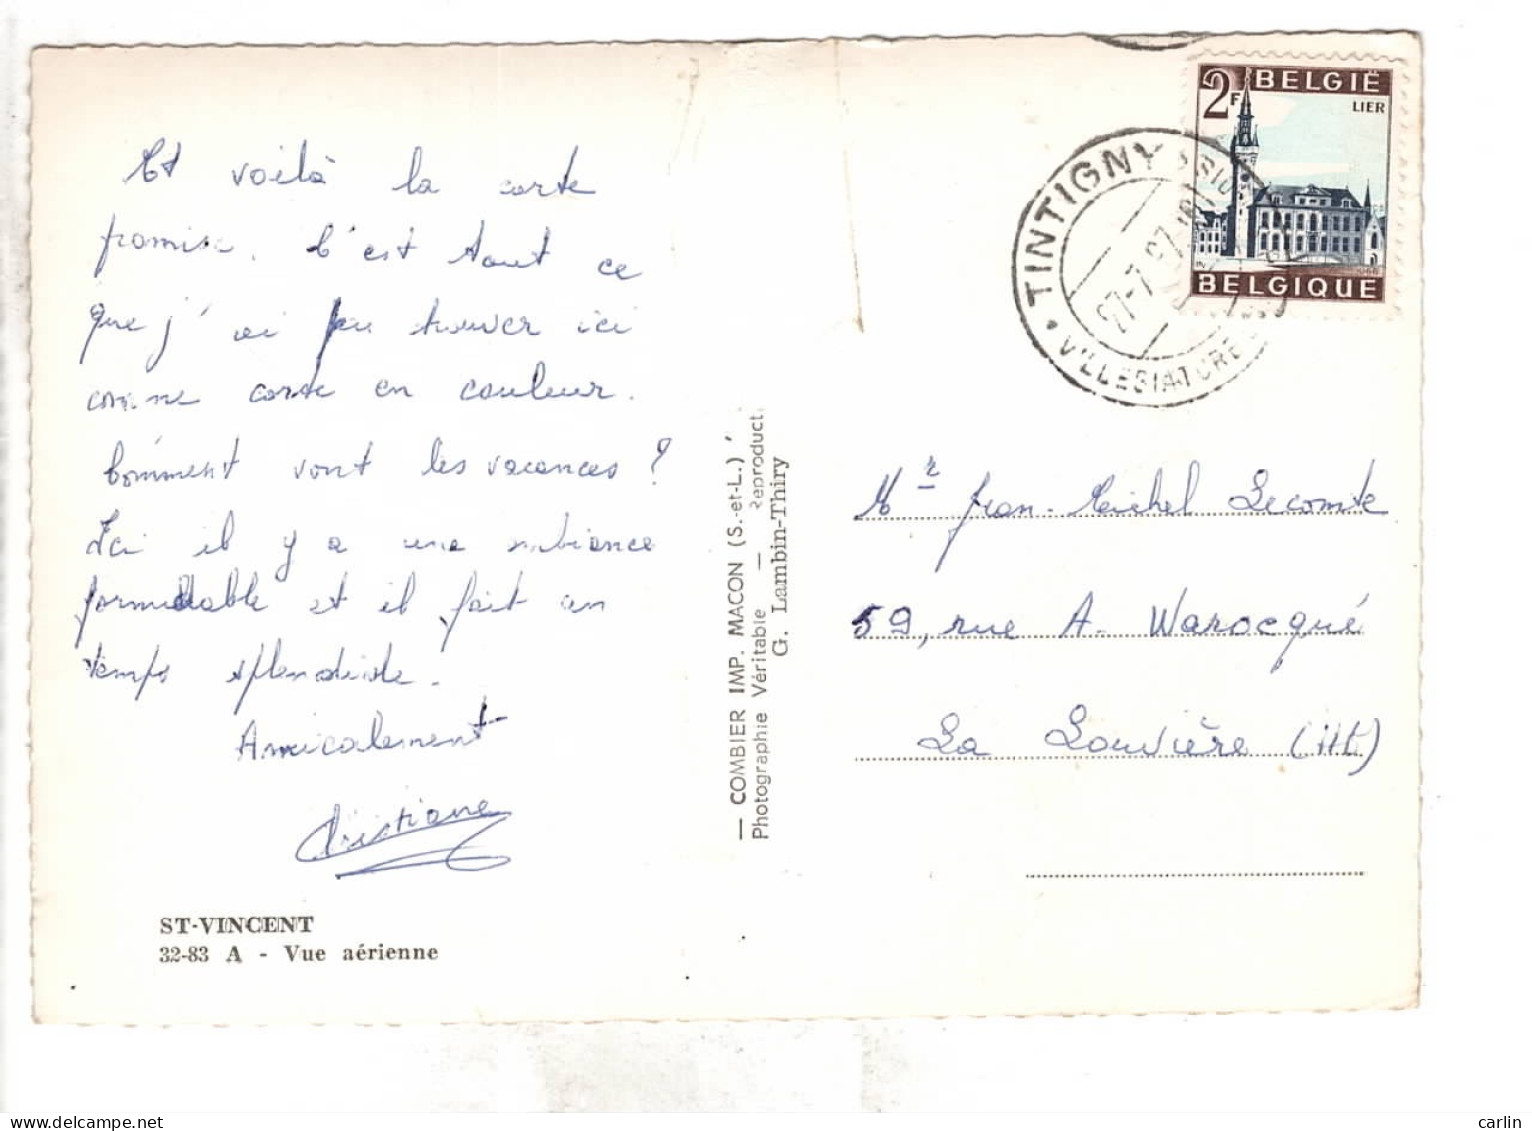 Et voilà la carte
promise. C'est tout ce
que j'ai pu trouver ici
comme carte en couleur.
Comment vont les vacances ?
Ici il y a une ambiance
formidable et il fait un
temps splendide.
Amicalement
Christiane
ST-VINCENT
32-83 A - Vue aérienne
— COMBIER IMP. MACON (S.-et-L.)
Photographie Véritable — Reproduct.
G. Lambin-Thiry
2F BELGIË
LIER
BELGIQUE
TINTIGNY
VILLEGIATURE
27-7
Mr Jean-Michel Lecomte
59, rue A. Warocqué
La Louvière (Ht)
carlin